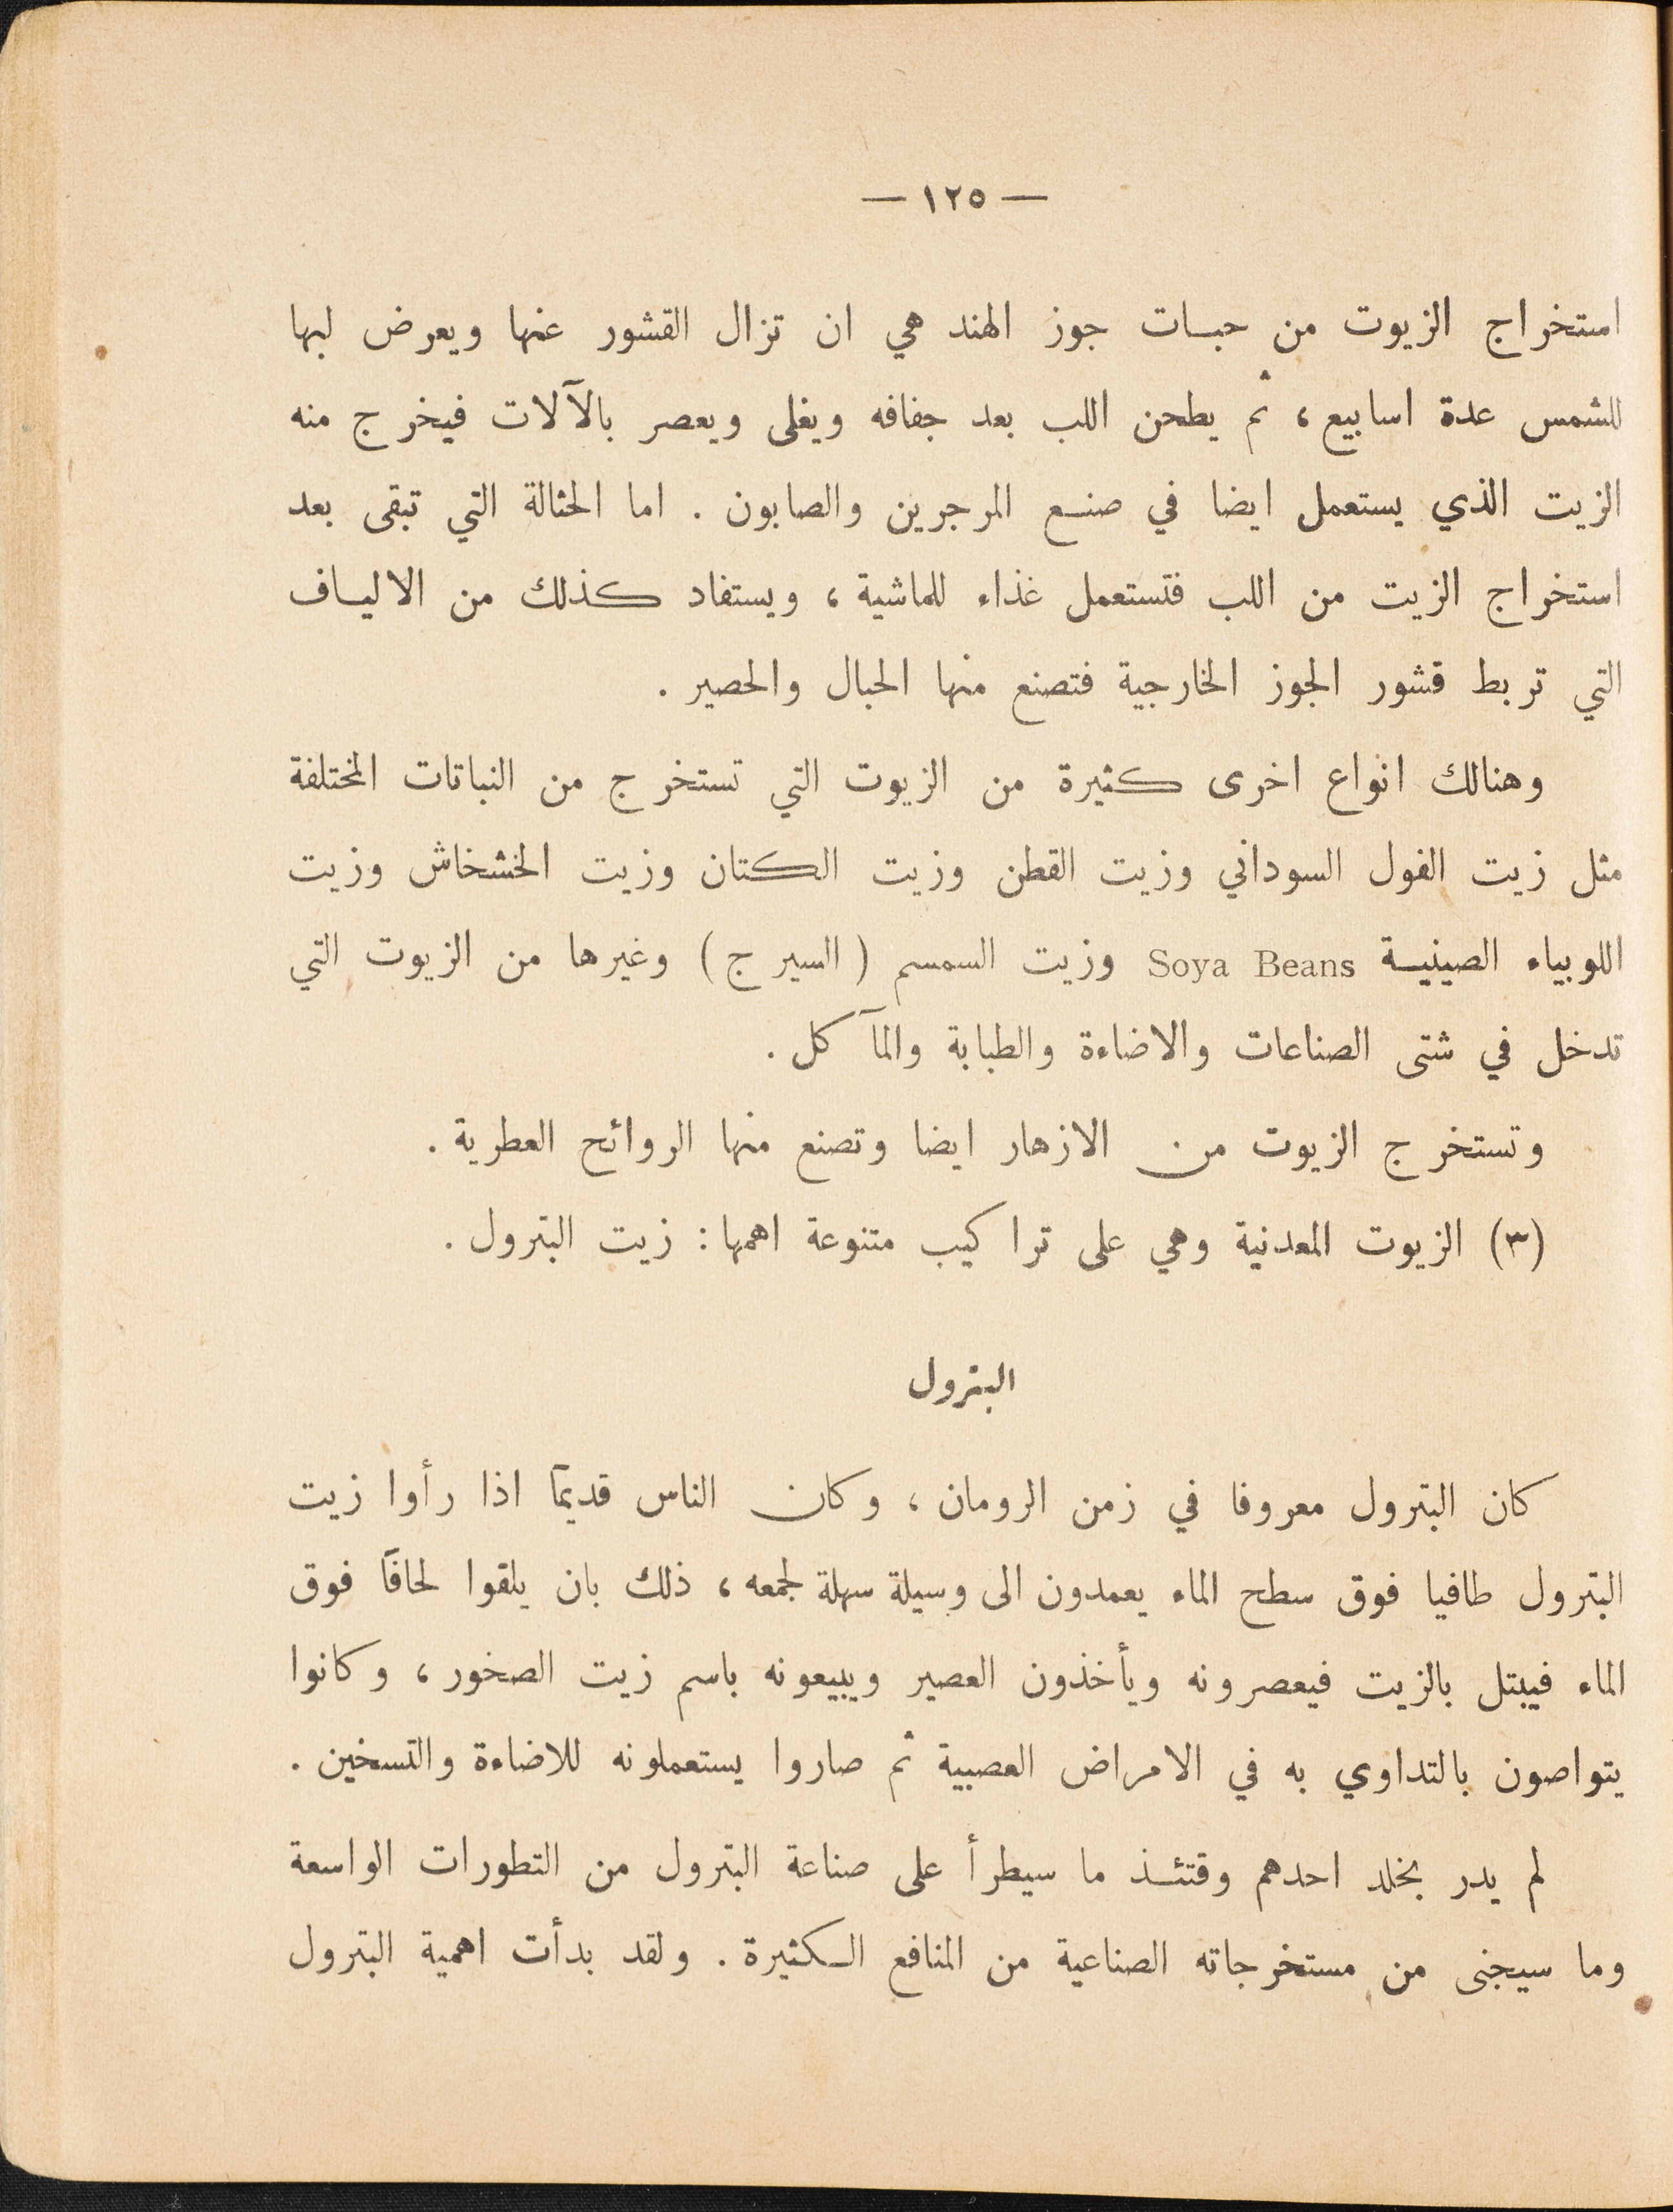 — ١٢٥ —
استخراج الزيوت من حبات جوز الهند هي ان تزال القشور عنها ويعرض لبها
للشمس عدة اسابيع، ثم يطحن اللب بعد جفافه ويغلى ويعصر بالآلات فيخرج منه
الزيت الذي يستعمل ايضا في صنع المرجرين والصابون . اما الحثالة التي تبقى بعد
استخراج الزيت من اللب فتستعمل غذاء للماشية ، ويستفاد كذلك من الالياف
التي تربط قشور الجوز الخارجية فتصنع منها الحبال والحصير .
وهنالك انواع اخرى كثيرة من الزيوت التي تستخرج من النباتات المختلفة
مثل زيت الفول السوداني وزيت القطن وزيت الكتان وزيت الخشخاش وزيت
اللوبياء الصينية Soya Beans وزيت السمسم (السيرج) وغيرها من الزيوت التي
تدخل في شتى الصناعات والاضاءة والطبابة والمآكل .
وتستخرج الزيوت من الازهار ايضا وتصنع منها الروائح العطرية .
(٣) الزيوت المعدنية وهي على تراكيب متنوعة اهمها : زيت البترول .
البترول
كان البترول معروفا في زمن الرومان ، وكان الناس قديمًا اذا رأوا زيت
البترول طافيا فوق سطح الماء يعمدون الى وسيلة سهلة لجمعه ، ذلك بان يلقوا لحافًا فوق
الماء فيبتل بالزيت فيعصرونه ويأخذون العصير ويبيعونه باسم زيت الصخور ، وكانوا
يتواصون بالتداوي به في الامراض العصبية ثم صاروا يستعملونه للاضاءة والتسخين .
لم يدر بخلد احدهم وقتئذ ما سيطرأ على صناعة البترول من التطورات الواسعة
وما سيجنى من مستخرجاته الصناعية من المنافع الكثيرة . ولقد بدأت اهمية البترول